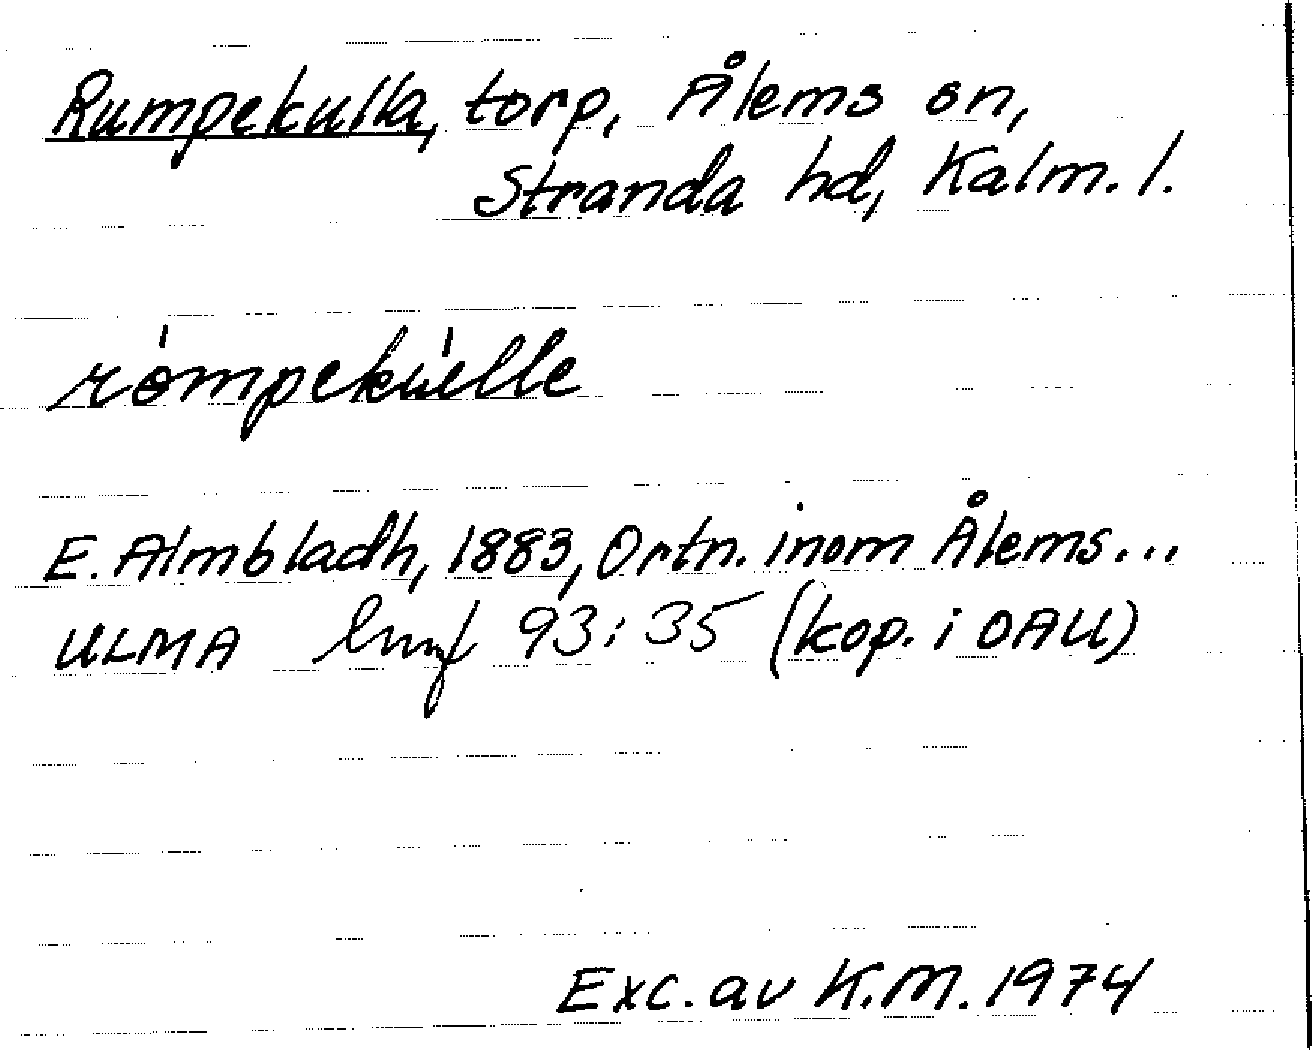 Rumpekulla, torp, Ålems sn,
Stranda hd, Kalm. l.
römpekulle
E. Almbladh, 1883, Ortn. inom Ålems...
ULMA 93:35 (kop. i OAU)
Exc. av K.M. 1974